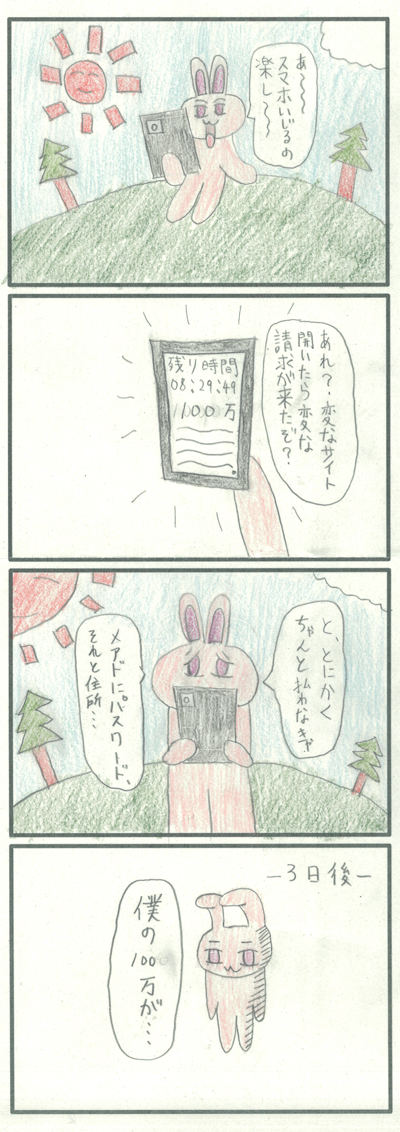 あ〜〜
スマホいじるの
楽し〜〜
あれ?・変なサイト
開いたら変な
請求が来たぞ?
残り時間
08:29:49
1100万
と、とにかく
ちゃんと払わなきゃ
メアドにパスワード、
それと住所…
－3日後－
僕の
100
万が…